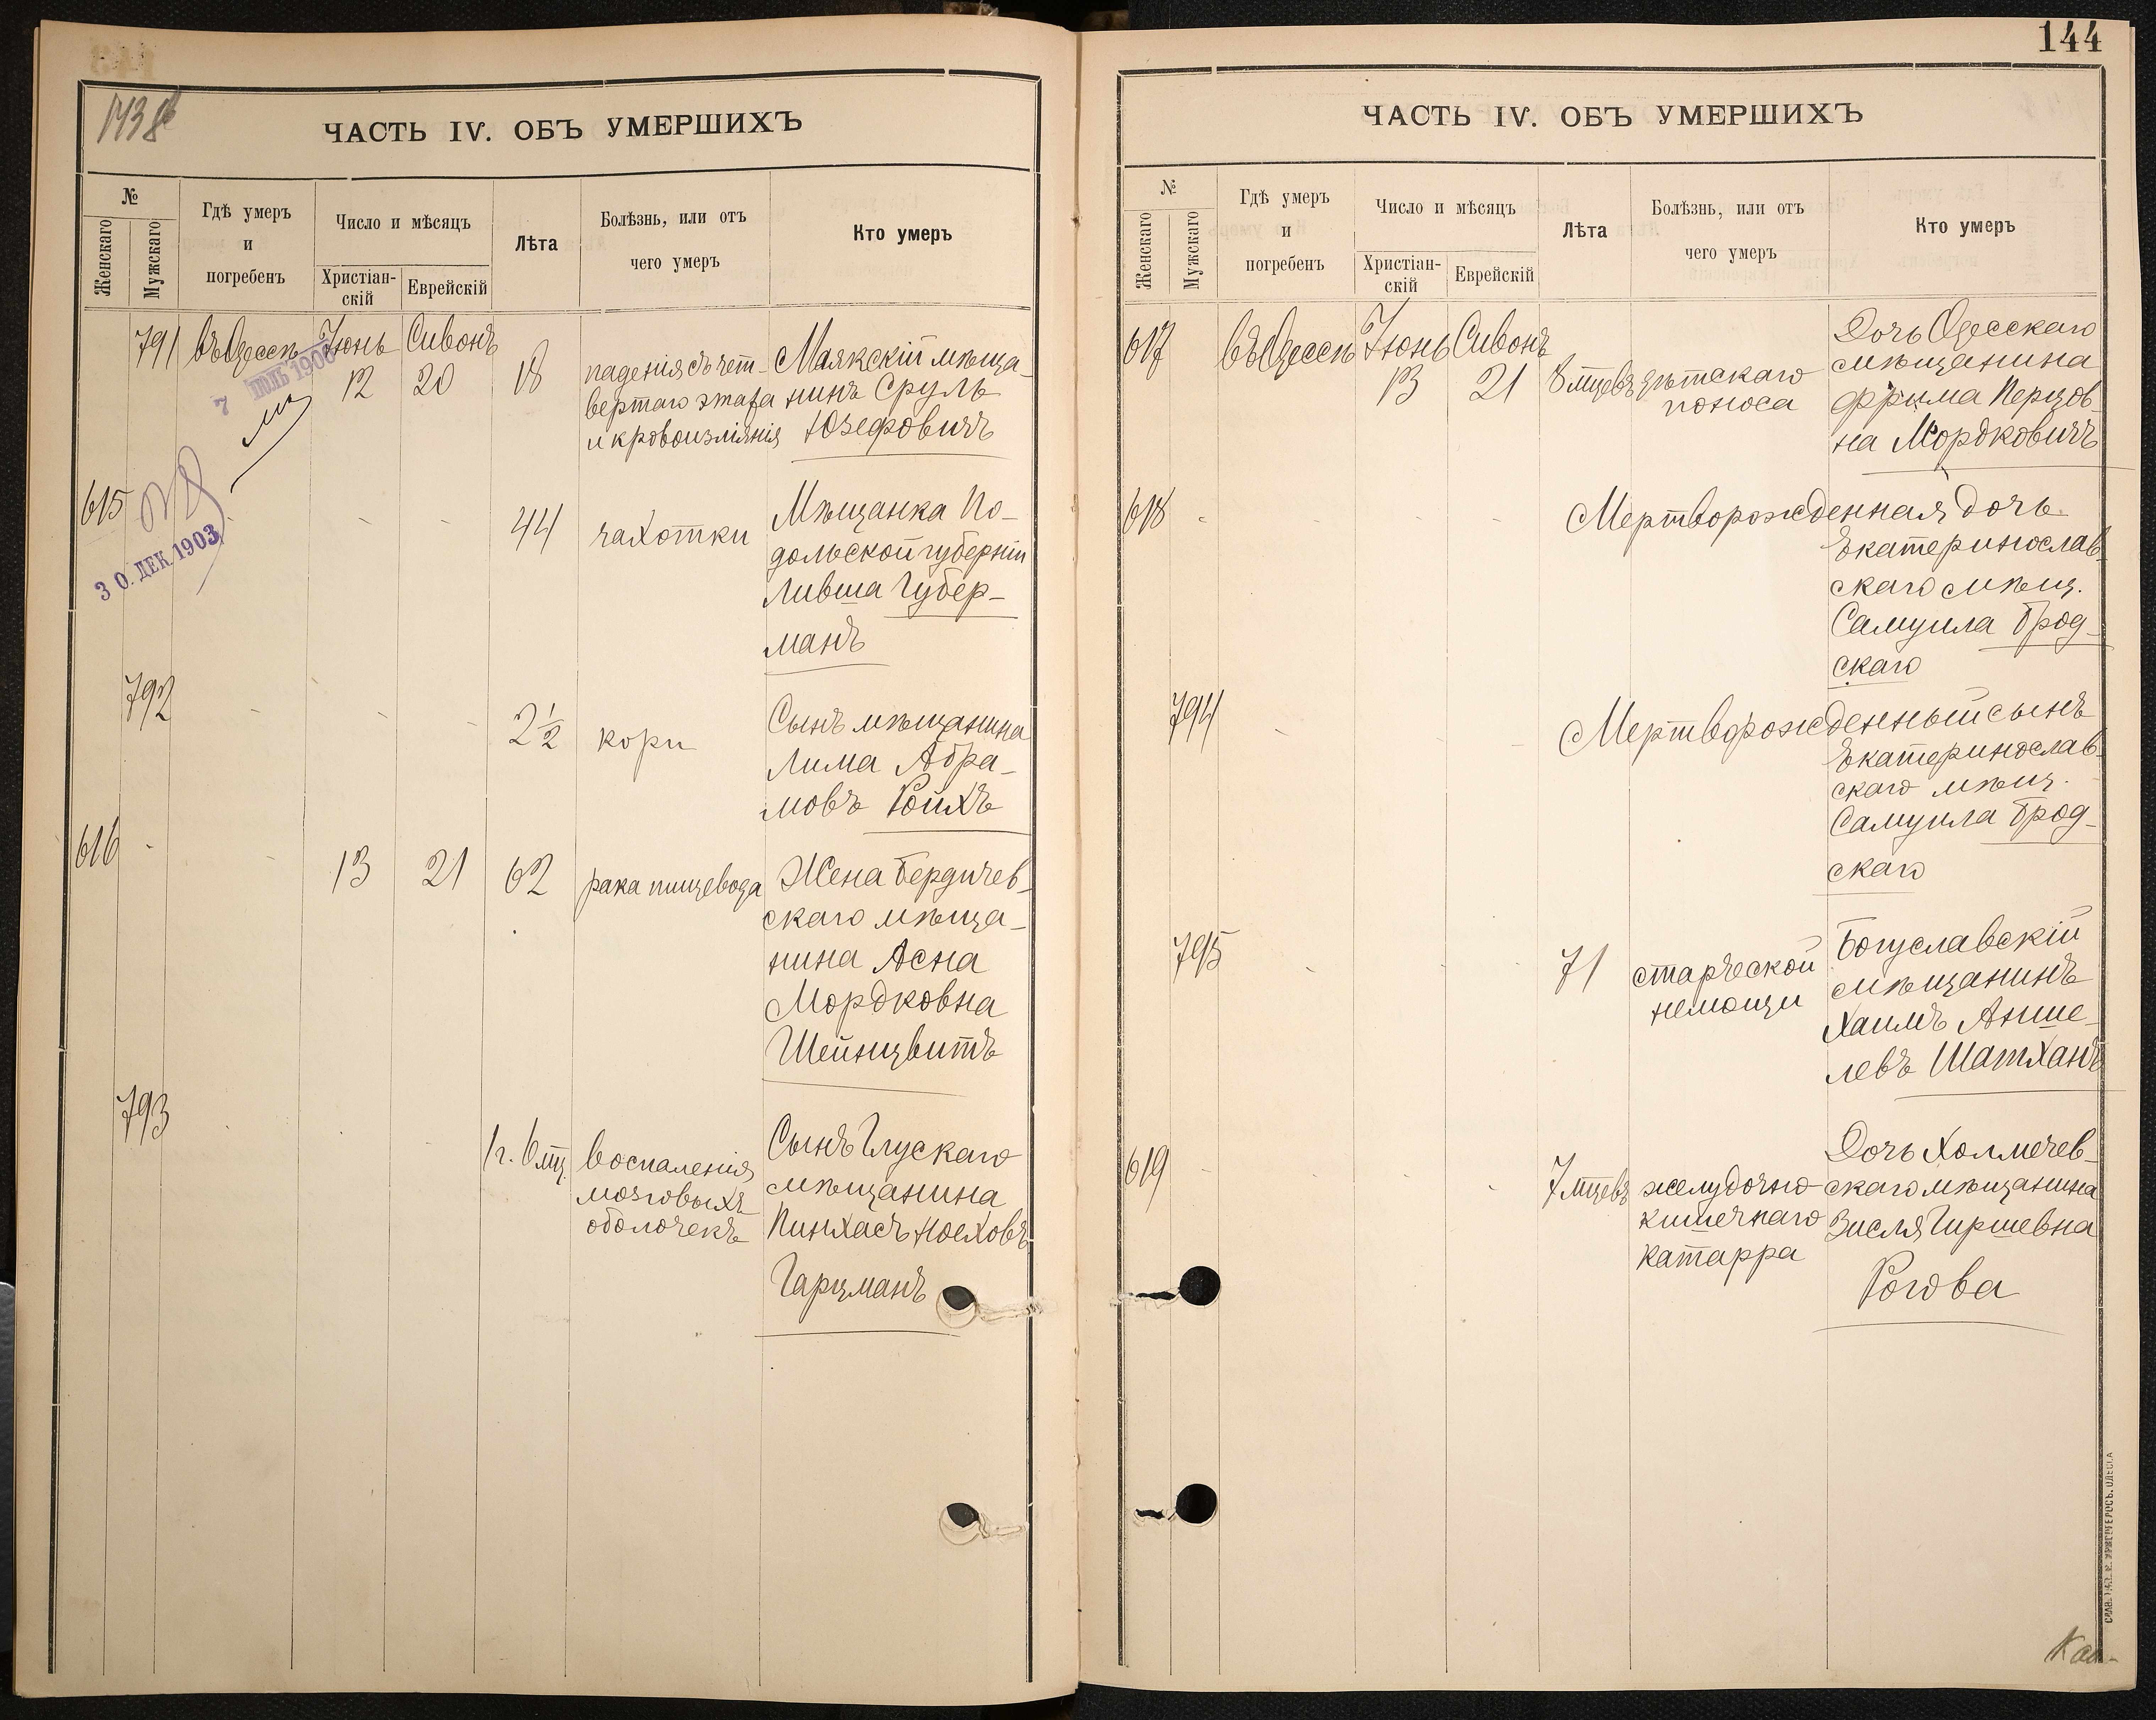 143 об
ЧАСТЬ IV. ОБЪ УМЕРШИХЪ
№
Женскаго
Мужскаго
Гдѣ умеръ
и
погребенъ
Число и мѣсяцъ
Христіан-
скій
Еврейскій
Лѣта
Болѣзнь, или отъ
чего умеръ
Кто умеръ
791 въ Одессѣ Іюнь Сивонъ
12 20 18
7 ІЮЛЬ 1906
паденія съ чет-
вертаго этажа
и кровоизліянія
Маякскій мѣща-
нинъ Сруль
Юзефовичъ
615
30. ДЕК 1903
44 чахотки
Мѣщанка По-
дольской губерніи
Ливша Губер-
манъ
792
2½ кори
Сынъ мѣщанина
Лима Абра-
мовъ Ройхъ
616
13 21 62 рака пищевода
Жена Бердичев-
скаго мѣща-
нина Асна
Мордковна
Шейнцвитъ
793
1 г. 6 мц. воспаленія
мозговыхъ
оболочекъ
Сынъ Глускаго
мѣщанина
Пинхасъ Ноеховъ
Гарцманъ
144
ЧАСТЬ IV. ОБЪ УМЕРШИХЪ
№
Женскаго
Мужскаго
Гдѣ умеръ
и
погребенъ
Число и мѣсяцъ
Христіан-
скій
Еврейскій
Лѣта
Болѣзнь, или отъ
чего умеръ
Кто умеръ
617 въ Одессѣ Іюнь Сивонъ
13 21 8 мцевъ дѣтскаго
поноса
Дочь Одесскаго
мѣщанина
Фрима Перцов-
на Мордковичъ
618
Мертворожденная дочь
Екатеринослав-
скаго мѣщ.
Самуила Брод-
скаго
794
Мертворожденный сынъ
Екатеринослав-
скаго мѣщ.
Самуила Брод-
скаго
795
71 старческой
немощи
Богуславскій
мѣщанинъ
Хаимъ Анше-
левъ Шатханъ
619
7 мцевъ желудочно-
кишечнаго
катарра
Дочь Холмечев-
скаго мѣщанина
Зисля Гиршевна
Рогова